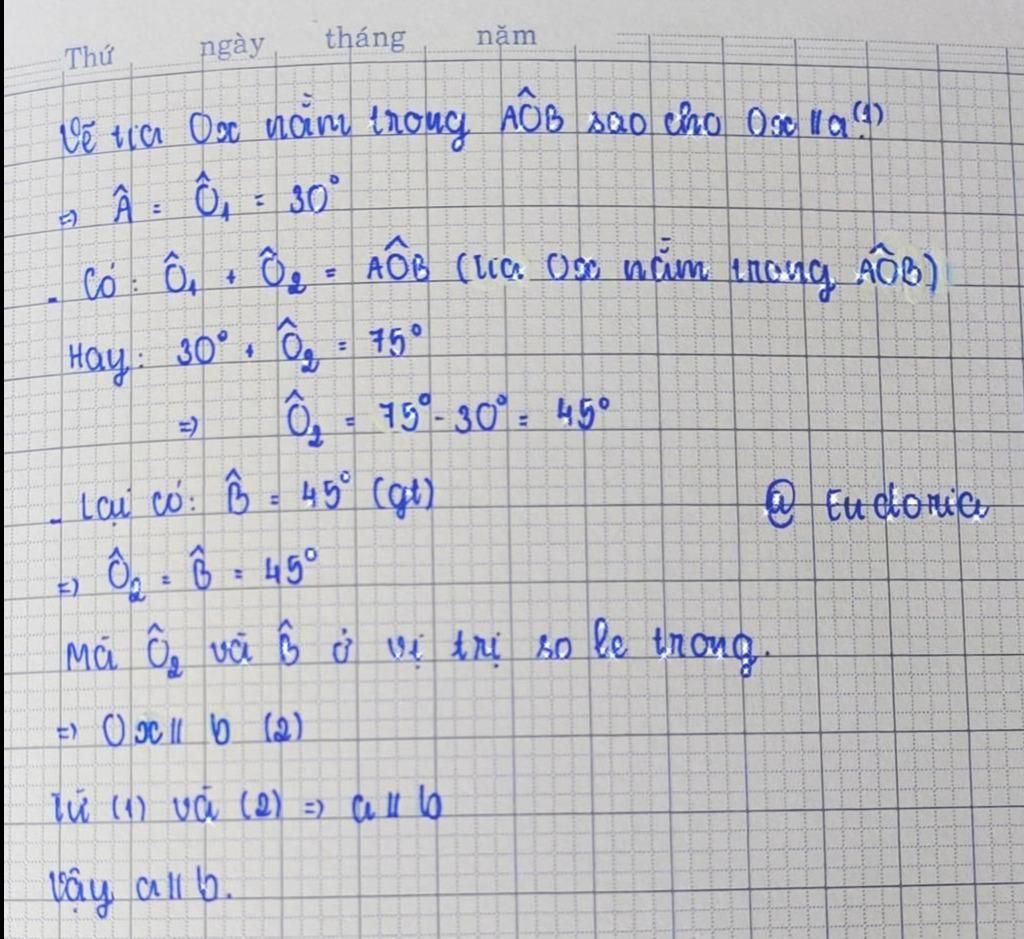 Thứ ngày tháng năm
Vẽ tia Ox nằm trong AÔB sao cho Ox // a (1)
=> Â = Ô₁ = 30°
- Có: Ô₁ + Ô₂ = AÔB (tia Ox nằm trong AÔB)
Hay: 30° + Ô₂ = 75°
=> Ô₂ = 75° - 30° = 45°
- Lại có: B̂ = 45° (gt)
@ Eudonia
=> Ô₂ = B̂ = 45°
Mà Ô₂ và B̂ ở vị trí so le trong.
=> Ox // b (2)
Từ (1) và (2) => a // b
Vậy a // b.